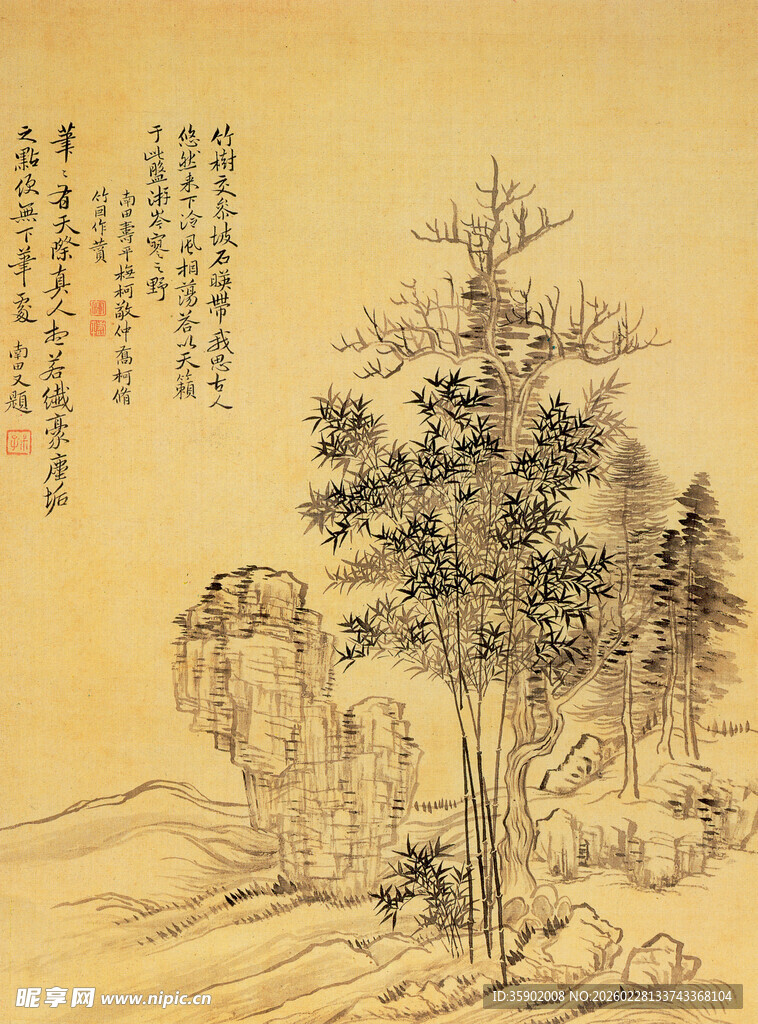 竹樹交參坡石暎帶我思古人
悠然来下泠風相蕩答以天籟
于此盤游岑寥之野
南田壽平橅柯敬仲舊柯脩
竹圖作贊
筆〻有天際真人想若纖豪塵垢
之點便無下筆處 南田又題
昵享网 www.nipic.cn
ID:35902008 NO:20260228133743368104